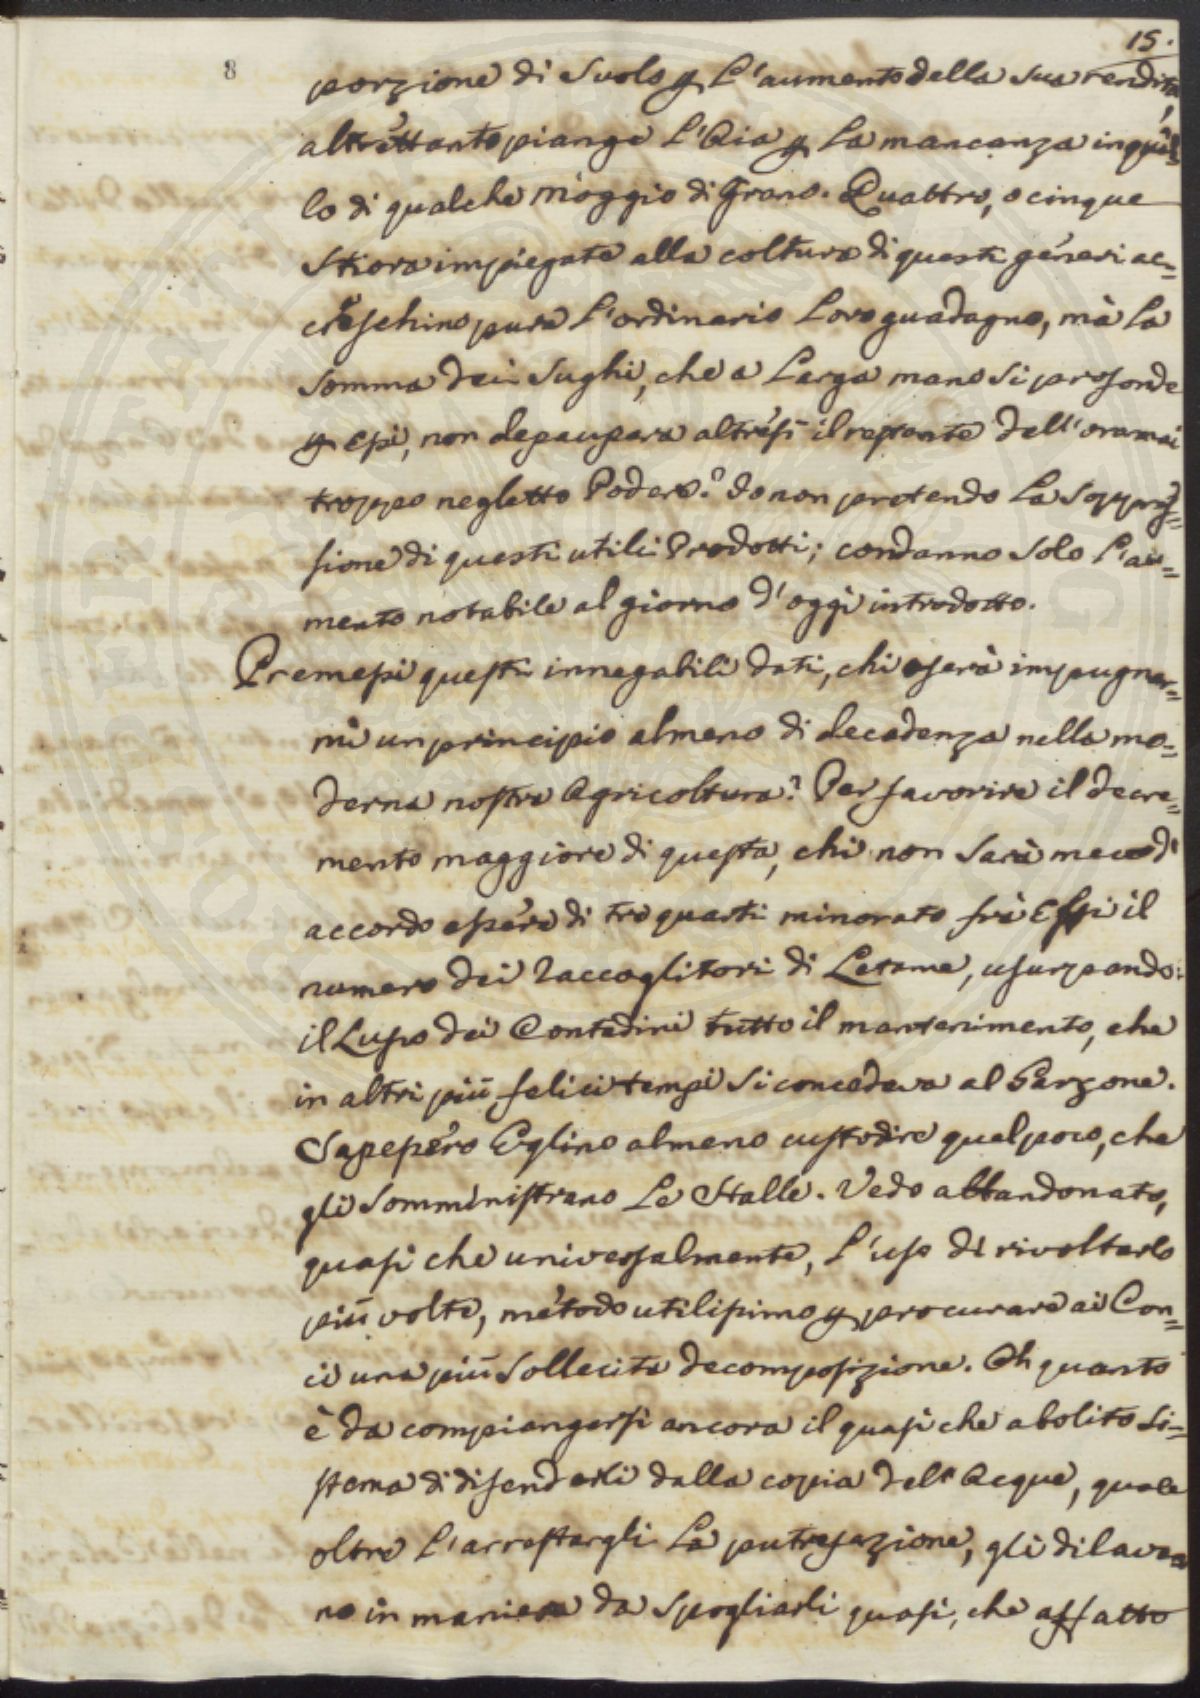 15.
8
porzione di Suolo p L'aumento della sua rendita,
altrettanto piange L'Aia p La mancanza in quel-
lo di qualche moggio di Grano. Quattro, o cinque
Stiora impiegate alla coltura di questi generi ac=
creschino pure L'ordinario Loro guadagno, mà La
Somma dei Sughi, che a Larga mano si profonde
p essi, non depaupera altresì il restante dell'oramai
troppo negletto Podere? Io non pretendo La Soppres=
sione di questi utili Prodotti; condanno solo L'au=
mento notabile al giorno d'oggi introdotto.
Premessi questi innegabili dati, chi oserà impugnar=
mi un principio almeno di decadenza nella mo=
derna nostra Agricoltura? Per favorire il decre=
mento maggiore di questa, chi non sarà meco d'
accordo essere di tre quarti minorato frà Essi il
numero dei Raccoglitori di Letame, usurpando
il Lusso dei Contadini tutto il mantenimento, che
in altri più felici tempi si concedeva al Garzone.
Sapessero Eglino almeno custodire quel poco, che
gli somministrano Le Stalle. Vedo abbandonato,
quasi che universalmente, L'uso di rivoltarlo
più volte, metodo utilissimo p procurare ai Con=
ci una più sollecita decomposizione. Oh quanto
è da compiangersi ancora il quasi che abolito Si=
stema di difenderli dalla copia dell'Acque, quale
oltre L'arrestargli La putrefazione, gli dilava=
no in maniera da spogliarli quasi, che affatto